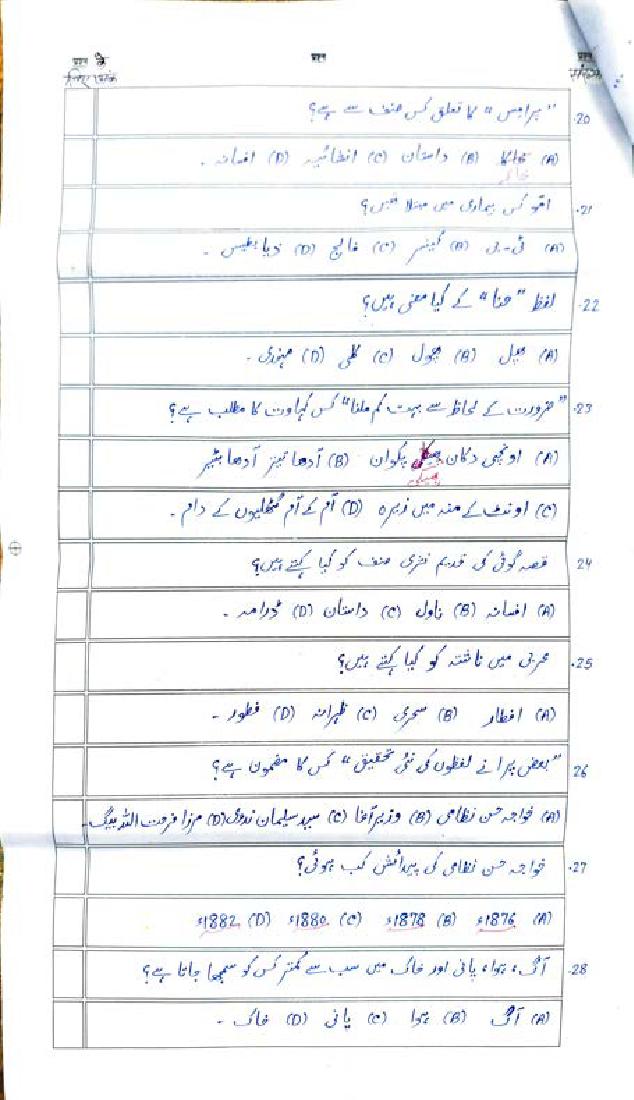 प्रश्न के
प्रश्न
प्रश्न
लिए अंक
संख्या
20. "پرایس" کا تعلق کس صنف سے ہے؟
(A) خاکہ (B) داستان (C) انشائیہ (D) افسانہ ۔
21. افو کس بیماری میں مبتلا تھیں؟
(A) ٹی-بی (B) کینسر (C) فالج (D) ذیابطیس ۔
22. لفظ "حنا" کے کیا معنی ہیں؟
(A) پھل (B) پھول (C) کلی (D) مہندی ۔
23. "ضرورت کے لحاظ سے بہت کم ملنا" کس کہاوت کا مطلب ہے؟
(A) اونچی دکان پھیکی پکوان (B) آدھا تیتر آدھا بٹیر
(C) اونٹ کے منہ میں زیرہ (D) آم کے آم گٹھلیوں کے دام ۔
24 قصہ گوئی کی قدیم نثری صنف کو کیا کہتے ہیں؟
(A) افسانہ (B) ناول (C) داستان (D) ڈرامہ ۔
25. عربی میں ناشتہ کو کیا کہتے ہیں؟
(A) افطار (B) سحری (C) ظہرانہ (D) فطور ۔
26 "بعض پرانے لفظوں کی نئی تحقیق" کس کا مضمون ہے؟
(A) خواجہ حسن نظامی (B) وزیر آغا (C) سید سلیمان ندوی (D) مرزا فرحت اللہ بیگ ۔
27. خواجہ حسن نظامی کی پیدائش کب ہوئی؟
(A) 1876ء (B) 1878ء (C) 1880ء (D) 1882ء
28. آگ، ہوا، پانی اور خاک میں سب سے کمتر کس کو سمجھا جاتا ہے؟
(A) آگ (B) ہوا (C) پانی (D) خاک ۔